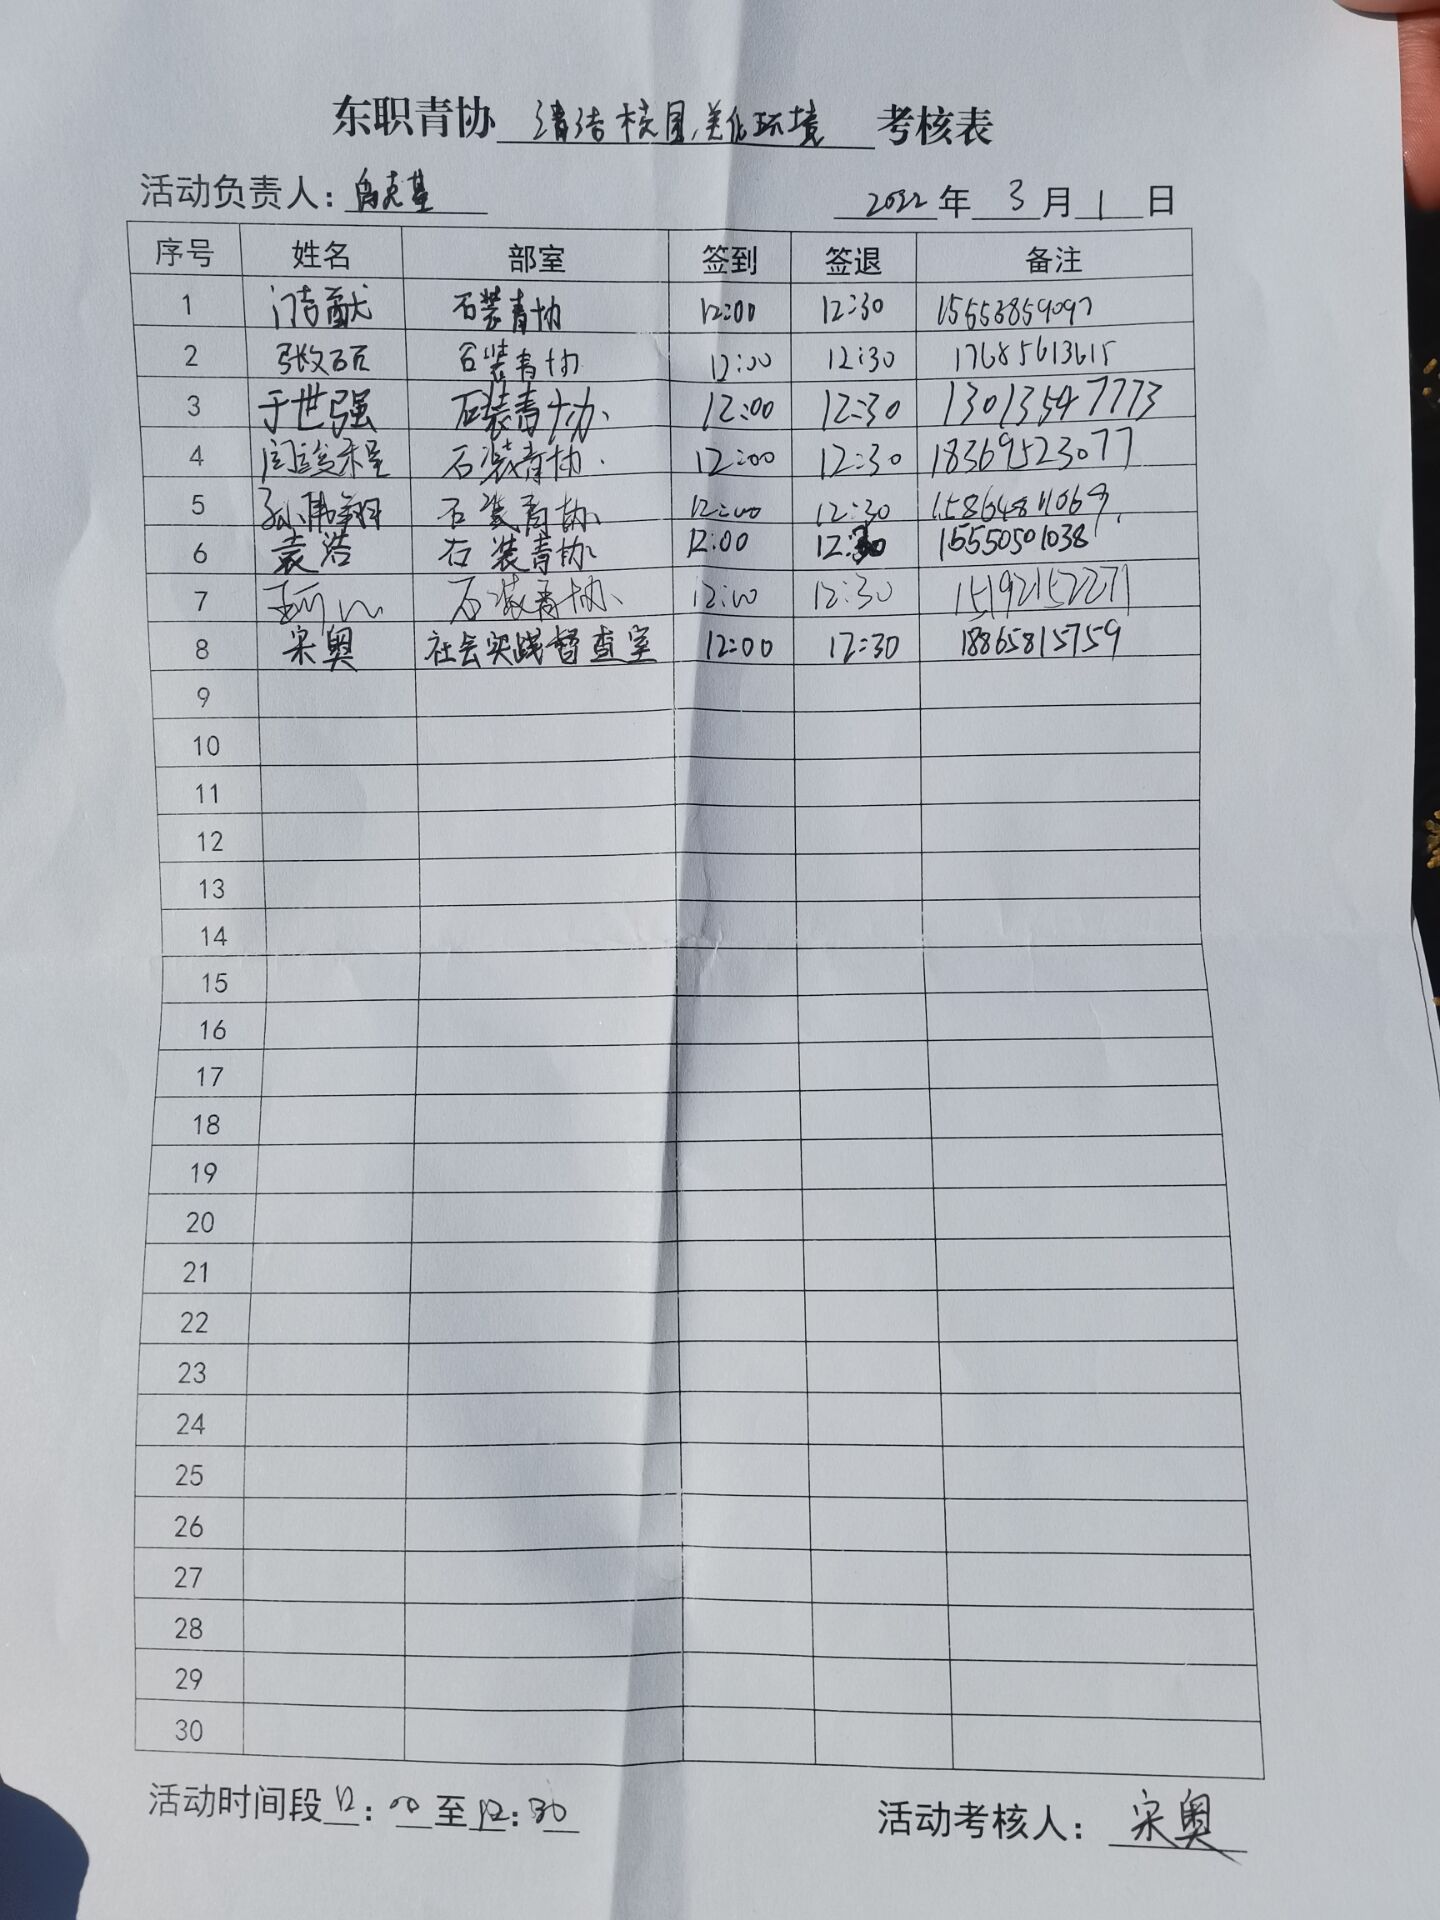 东职青协 清洁校园,美化环境 考核表
活动负责人: 2022年 3月 1日
序号 姓名 部室 签到 签退 备注
1 石装青协 12:00 12:30 15553859097
2 张文硕 石装青协 12:00 12:30 17685613615
3 于世强 石装青协 12:00 12:30 13013547773
4 石装青协 12:00 12:30 18369523077
5 孙伟翔 石装青协 12:00 12:30
6 袁浩 石装青协 12:00 12:30 15550501038
7 石装青协 12:00 12:30 15192152271
8 宋奥 社会实践督查室 12:00 12:30 18865815759
9
10
11
12
13
14
15
16
17
18
19
20
21
22
23
24
25
26
27
28
29
30
活动时间段 12:00至12:30 活动考核人: 宋奥